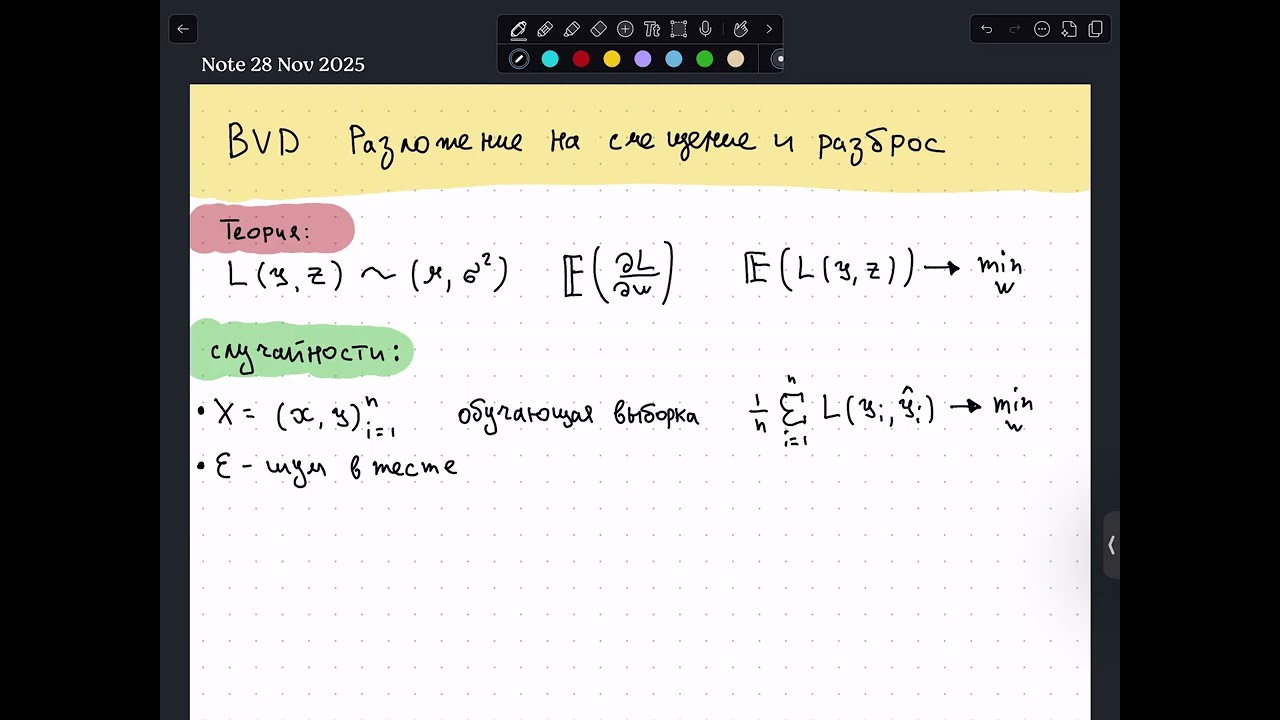 Note 28 Nov 2025
BVD Разложение на смещение и разброс
Теория:
L(y, z) ~ (μ, σ²) 𝔼(∂L/∂w) 𝔼(L(y, z)) → min w
случайности:
• X = (x, y)ⁿᵢ₌₁ обучающая выборка 1/n Σⁿᵢ₌₁ L(yᵢ, ŷᵢ) → min w
• ε - шум в тесте